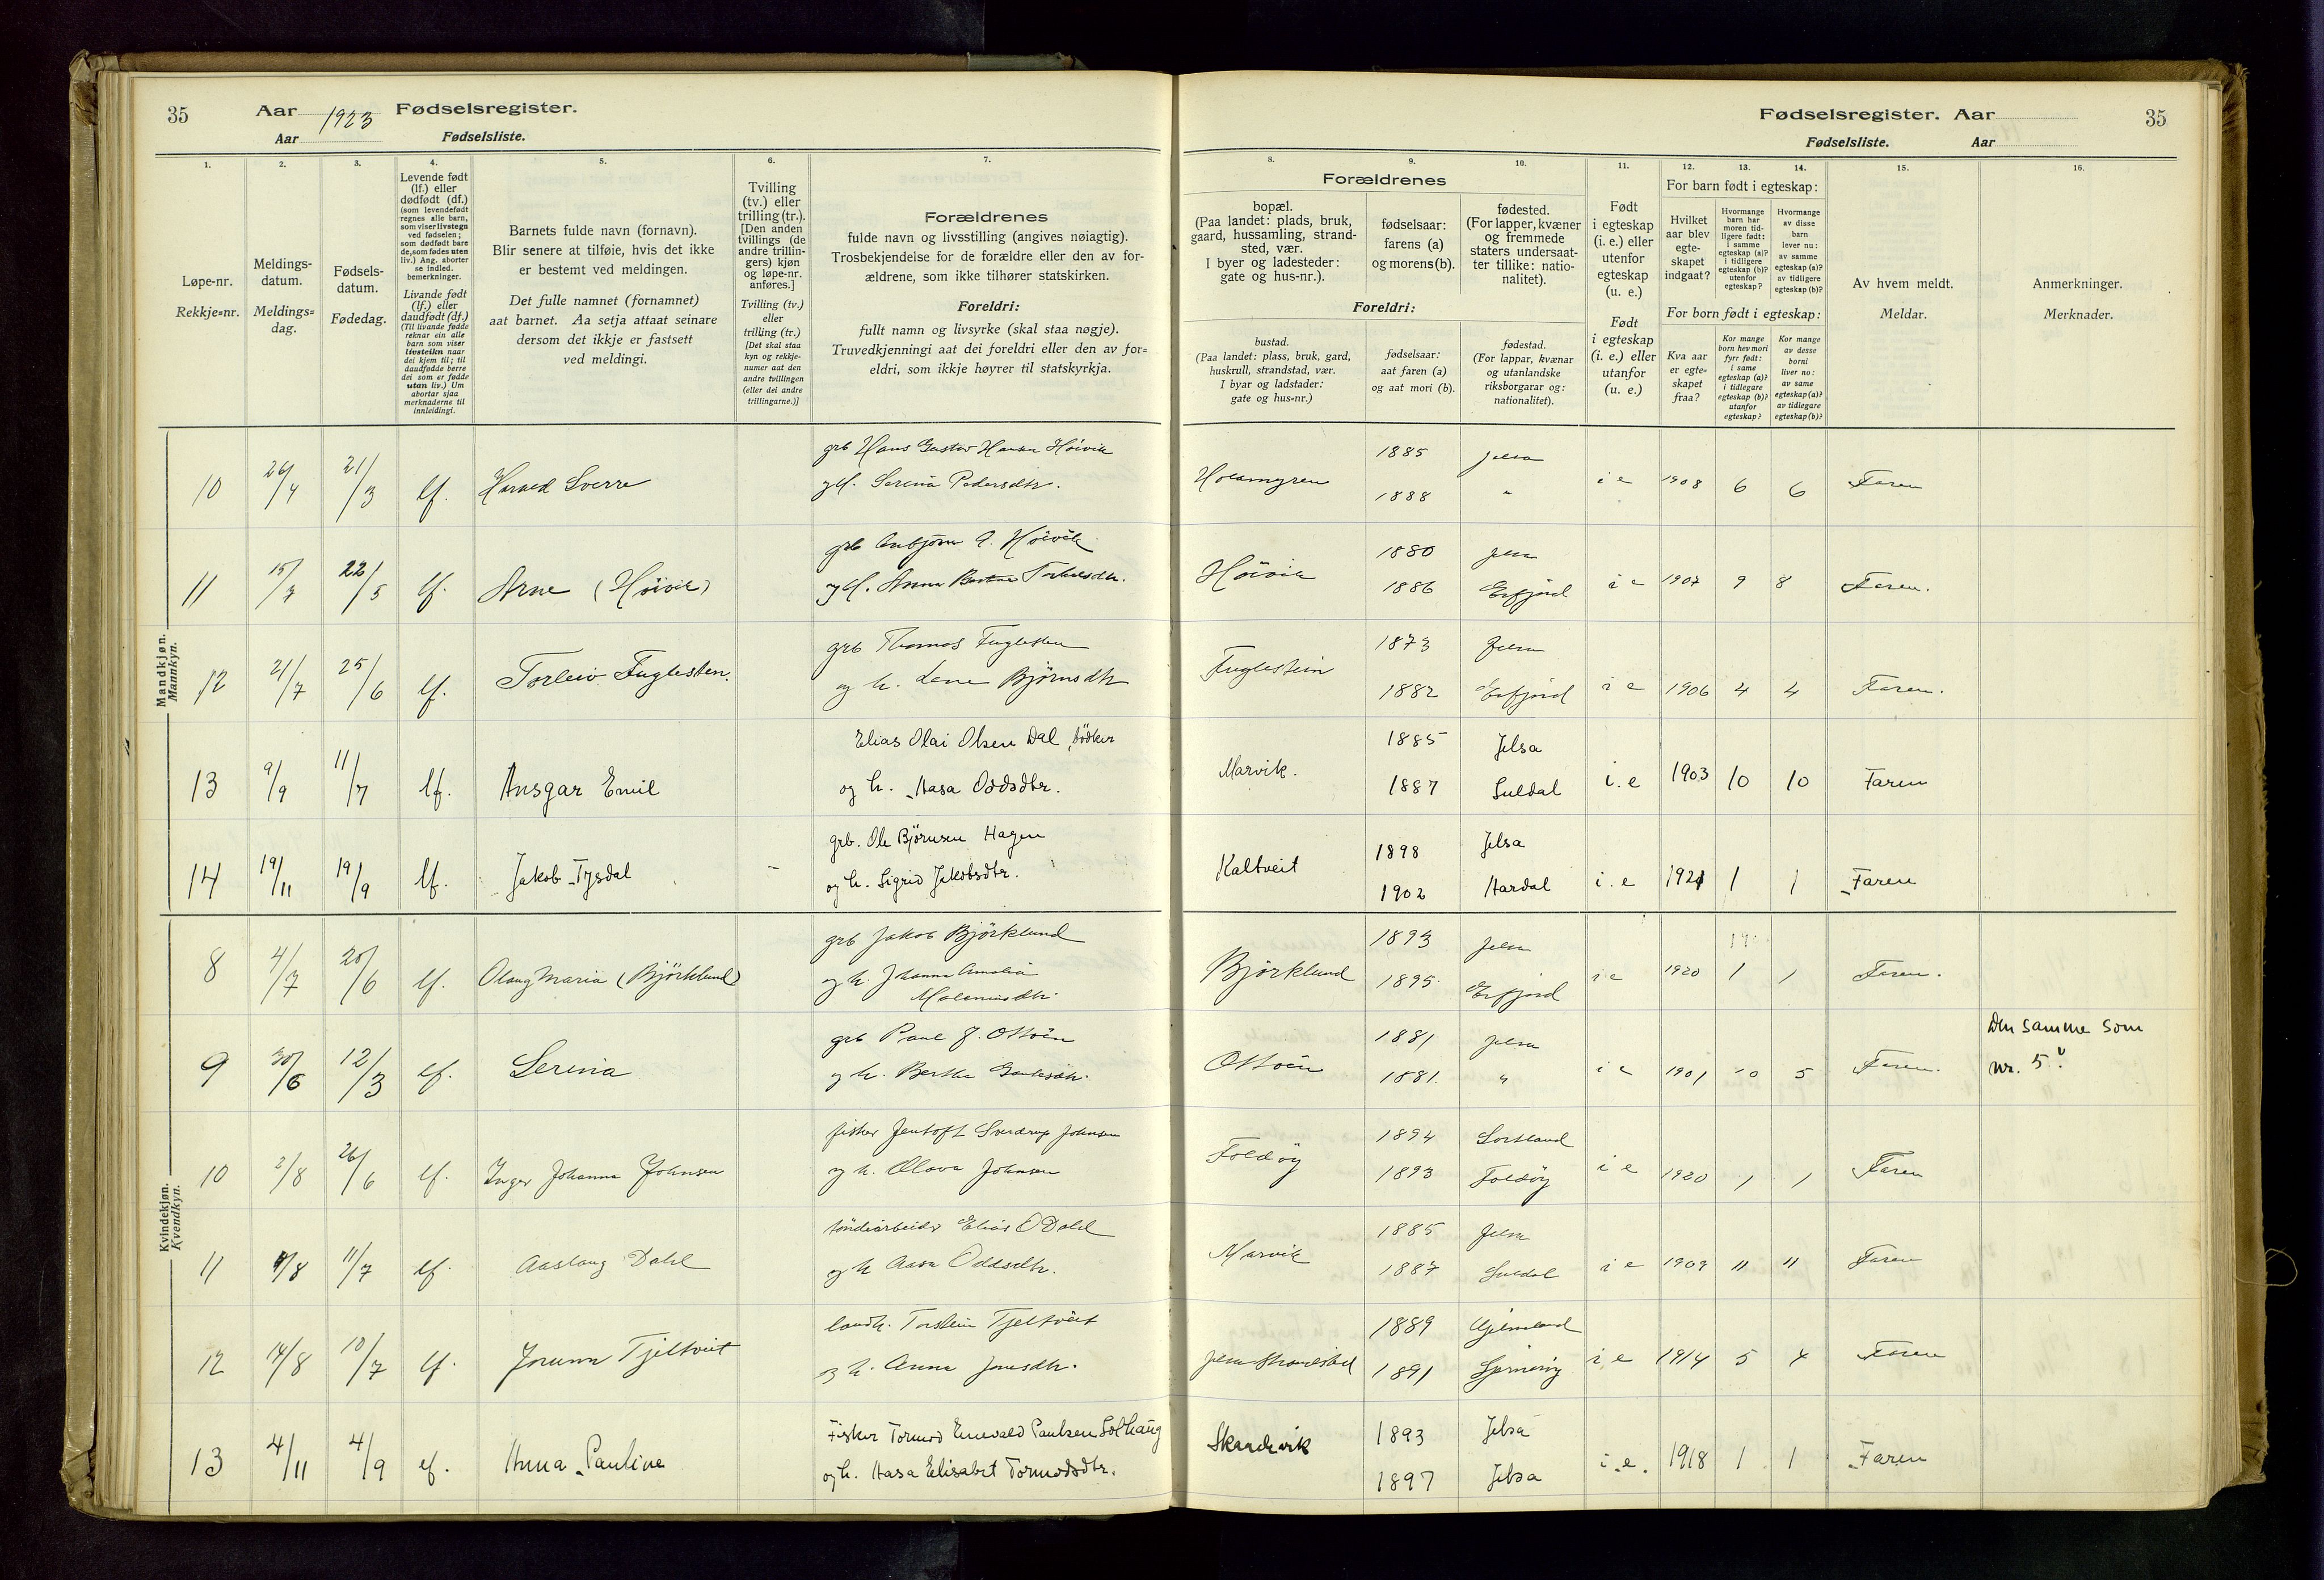 35 Aar 1923 Fødselsregister.
Aar Fødselsliste.
Fødselsregister. Aar 35
Fødselsliste. Aar
1. 2. 3. 4. 5. 6. 7. 8. 9. 10. 11. 12. 13. 14. 15. 16.
Løpe-nr.
Rekkje=nr.
Meldings-
datum.
Meldings=
dag.
Fødsels-
datum.
Fødedag.
Levende født
(lf.) eller
dødfødt (df.)
(som levendefødt
regnes alle barn,
som viser livstegn
ved fødselen;
som dødfødt bare
de, som fødes uten
liv.) Ang. aborter
se indled.
bemerkninger.
Livande født
(lf.) eller
daudfødt (df.)
(Til livande fødde
reknar ein alle
barn som viser
livsteikn naar
dei kjem til; til
daudfødde berre
dei som er fødde
utan liv.) Um
abortar sjaa
merknaderne til
innleidingi.
Barnets fulde navn (fornavn).
Blir senere at tilføie, hvis det ikke
er bestemt ved meldingen.
Det fulle namnet (fornamnet)
aat barnet. Aa setja attaat seinare
dersom det ikkje er fastsett
ved meldingi.
Tvilling
(tv.) eller
trilling (tr.).
[Den anden
tvillings (de
andre trillin-
gers) kjøn
og løpe-nr.
anføres.]
Tvilling (tv.)
eller
trilling (tr.)
[Det skal staa
kyn og rekkje-
numer aat den
andre tvillingen
(eller dei andre
trillingarne.)]
Forældrenes
fulde navn og livsstilling (angives nøiagtig).
Trosbekjendelse for de forældre eller den av for-
ældrene, som ikke tilhører statskirken.
Foreldri:
fullt namn og livsyrke (skal staa nøgje).
Truvedkjenningi aat dei foreldri eller den av for=
eldri, som ikkje høyrer til statskyrkja.
Forældrenes
bopæl.
(Paa landet: plads, bruk,
gaard, hussamling, strand-
sted, vær.
I byer og ladesteder:
gate og hus-nr.).
fødselsaar:
farens (a)
og morens (b).
fødested.
(For lapper, kvæner
og fremmede
staters undersaat-
ter tillike: natio-
nalitet).
Foreldri:
bustad.
(Paa landet: plass, bruk, gard,
huskrull, strandstad, vær.
I byar og ladstader:
gate og hus=nr.)
fødselsaar:
aat faren (a)
og aat mori (b).
fødestad.
(For lappar, kvænar
og utanlandske
riksborgarar og:
nationalitet).
Født
i egteskap
(i. e.) eller
utenfor
egteskap
(u. e.)
Født
i egteskap
(i. e.) eller
utanfor
(u. e.)
For barn født i egteskap:
Hvilket
aar blev
egte-
skapet
indgaat?
Hvormange
barn har
moren tid-
ligere født:
i samme
egteskap (a)?
i tidligere
egteskap (b)?
utenfor
egteskap?
Hvormange
av disse
barn
lever nu:
av samme
egteskap (a)?
av tidligere
egteskap (b)?
For born født i egteskap:
Kva aar
er egte=
skapet
fraa?
Kor mange
born hev mori
fyrr født:
i same
egteskap (a)?
i tidlegare
egteskap (b)?
utanfor
egteskap?
Kor mange
av desse
borni
liver no:
av same
egteskap (a)?
av tidlegare
egteskap (b)?
Av hvem meldt.
Meldar.
Anmerkninger.
Merknader.
Mandkjøn.
Mannkyn.
10 26/4 21/3 lf. Harald Sverre grb Hans Gustav Hansen Höivik Holamyren 1885 Jelsa
og h. Serina Pedersdtr. 1888 " i e 1908 6 6 Faren
11 15/7 22/5 lf. Arne (Höivik) grb Asbjörn A. Höivik Höivik 1880 Jelsa
og h. Anna Torkelsdtr. 1886 Erfjord i e 1907 9 8 Faren.
12 21/7 25/6 lf. Torleiv Fuglesten. grb Thomas Fuglesten Fuglestein 1873 Jelsa
og h. Lene Björnsdtr 1882 Erfjord i e 1906 4 4 Faren.
13 9/9 11/7 lf. Ansgar Emil Elias Olai Olsen Dal, bödker Marvik. 1885 Jelsa
og h. Aasa Oddsdtr. 1887 Suldal i. e 1903 10 10 Faren
14 19/11 19/9 lf. Jakob Tysdal - grb. Ole Björnsen Hagen Kaltveit 1898 Jelsa
og h. Sigrid Jakobsdtr. 1902 Aardal i. e 1921 1 1 Faren
Kvindekjøn.
Kvendkyn.
8 4/7 20/6 lf. Olaug Maria (Björklund) grb Jakob Björklund Björklund 1893 Jelsa
og h. Johanna Amalia 1895 Erfjord i e 1920 1 1 Faren.
Malenusdtr.
9 30/6 12/3 lf. Serina grb Paul J. Ottöen Ottöen 1881 Jelsa Den samme som
og h. Berthe 1881. " i e 1901 10 5 Faren. nr. 5?
10 2/8 26/6 lf. Inger Johanna Johnsen fisker Jentoft Sverdrup Johnsen Foldöy 1894 Sortland
og h. Olava Johnsen 1893 Foldöy i e 1920 1 1 Faren
11 9/8 11/7 lf. Aaslaug Dahl töndearbeider Elias O Dahl Marvik 1885 Jelsa
og h Aasa Oddsdtr. 1887 Suldal i e 1909 11 11 Faren
12 14/8 10/7 lf. Jorunn Tjeltveit landh. Torstein Tjeltveit Jelsa Strandsted 1889 Hjelmeland
og h. Anna Jonsdtr. 1891 i e 1914 5 4 Faren
13 4/11 4/9 lf. Anna Pauline Fisker Tormod Enevald Paulsen Solhaug Skardevik 1893 Jelsa
og h. Aasa Elisabet Tormodsdtr. 1897 Jelsa i. e. 1918 1 1 Faren